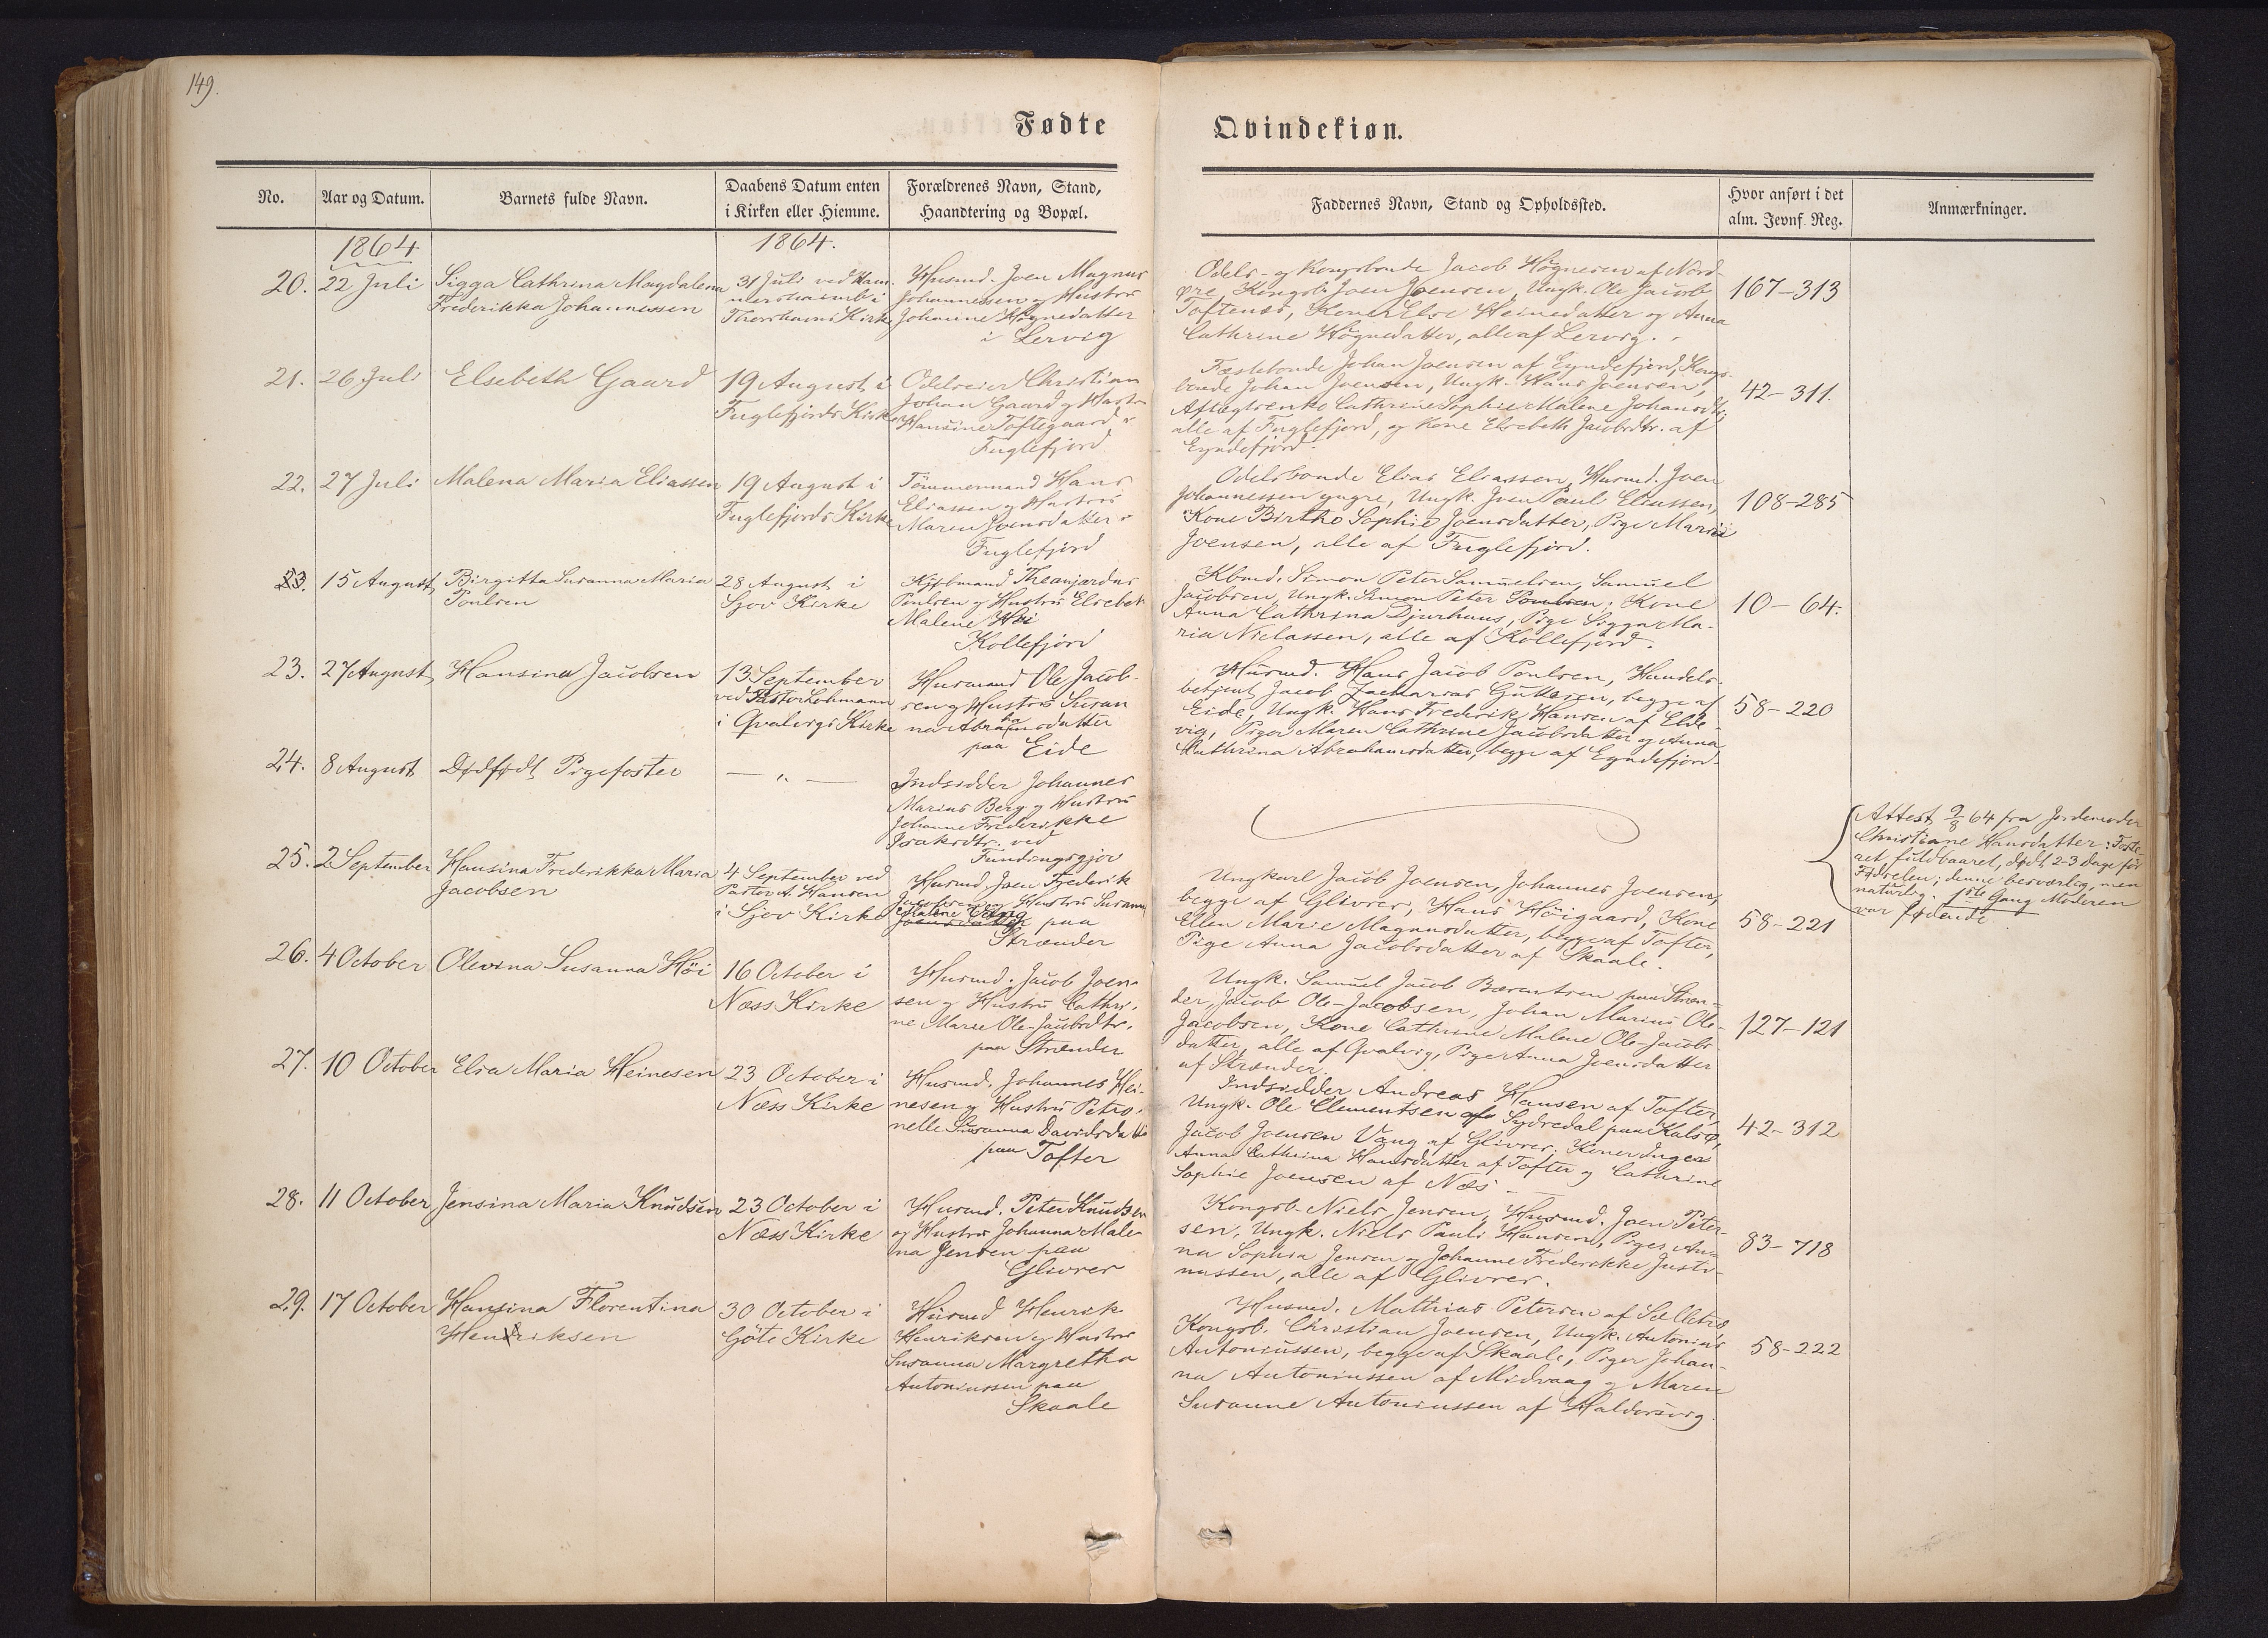 149.
Fødte
Qvindekiøn.
No.
Aar og Datum.
Barnets fulde Navn.
Daabens Datum enten
i Kirken eller Hiemme.
Forældrenes Navn, Stand,
Haandtering og Bopæl.
Faddernes Navn, Stand og Opholdssted.
Hvor anført i det
alm. Jevnf. Reg.
Anmærkninger.
1864
1864.
20.
22 Juli
Sigga Cathrina Magdalena
Frederikka Johannessen
31 Juli ved Ham-
mershaimb i
Thorshavns Kirke
Husmd. Joen Magnus
Johannessen og Hustru
Johanne Høgnedatter
i Lervig
Odels- og Kongsbonde Jacob Høgnesen af Nord-
øre, Kongsb. Joen Joensen, Ungk. Ole Jacob
Toftenæs, Koner Else Heinedatter og Anna
Cathrine Høgnedatter, alle af Lervig.
167-313
21.
26 Juli
Elsebeth Gaard
19 August i
Fuglefjords Kirke
Odelseier Christian
Johan Gaard og Hustru
Hansine Toftegaard i
Fuglefjord
Fæstebonde Johan Joensen af Eyndefjord, Kongs-
bonde Johan Joensen, Ungk. Hans Joensen,
Aftægtsenke Cathrine Sophie Malene Johansdtr.,
alle af Fuglefjord, og Kone Elsebeth Jacobsdtr. af
Eyndefjord.
42-311.
22.
27 Juli
Malena Maria Eliassen
19 August i
Fuglefjords Kirke
Tömmermand Hans
Eliassen og Hustru
Maren Joensdatter i
Fuglefjord
Odelsbonde Elias Eliassen, Husmd. Joen
Johannessen yngre, Ungk. Joen Poul Eliassen,
Kone Birthe Sophie Joensdatter, Pige Maria
Joensen, alle af Fuglefjord.
108-285
23.
15 August
Birgitta Susanna Maria
Poulsen
28 August i
Sjov Kirke
Kjøbmand
Poulsen og Hustru Elsebet
Malene Høi
Kollefjord
Kbmd. Simon Peter Samuelsen, Samuel
Jacobsen, Ungk. Simon Peter Poulsen; Kone
Anna Cathrina Djurhuus, Pige Sigga Ma-
ria Niclassen, alle af Kollefjord.
10-64.
23.
27 August
Hansina Jacobsen
13 September
ved Pastor Lohmann
i Qvalvigs Kirke
Husmand Ole Jacob-
sen og Hustru Susan
na Abrahamsdatter
paa Eide
Husmd. Hans Jacob Poulsen, Handels-
betjent Jacob Zacharias Guttesen, begge af
Eide, Ungk. Hans Fredrik Hansen af Elde-
vig, Piger Maren Cathrine Jacobsdatter og Anna
Cathrina Abrahamsdatter, begge af Eyndefjord.
58-220
24.
8 August
Dødfødt Pigefoster
— „ —
Indsidder Johannes
Marius Berg og Hustru
Johanne Frederikke
Isaksdtr. ved
Fundingsgjov
Attest 9/8 64 fra Jordemoder
Christiane Hansdatter: Foste-
ret fuldbaaret, dødt 2-3 Dage før
Fødselen; denne besværlig, men
naturlig. 1ste Gang Moderen
var fødende
25.
2 September
Hansina Frederikka Maria
Jacobsen
4 September ved
Pastor A. Hansen
i Sjov Kirke
Husmd. Joen Frederik
Jacobsen og Hustru Susanne
Malene Vang
Joensdatter paa
Strænder
Ungkarl Jacob Joensen, Johannes Joensen,
begge af Glivrer, Hans Höigaard, Kone
Ellen Marie Magnusdatter, begge af Tofter,
Pige Anna Jacobsdatter af Skaale.
58-221
26.
4 October
Olevina Susanna Höi
16 October i
Næss Kirke
Husmd. Jacob Joen-
sen og Hustru Cathri-
ne Marie Ole-Jacobsdtr.
paa Strænder
Ungk. Samuel Jacob Bærentsen paa Stræn-
der, Jacob Ole-Jacobsen, Johan Marius Ole-
Jacobsen, Kone Cathrine Malene Ole-Jacobs
datter, alle af Qvalvig, Pige Anna Joensdatter
af Strænder.
127-121
27.
10 October
Elsa Maria Heinesen
23 October i
Næss Kirke
Husmd. Johannes Hei-
nesen og Hustru Petro-
nelle Susanna Davidsdatter
paa Tofter
Indsidder Andreas Hansen af Tofter,
Ungk. Ole Clementsen af Sydredal paa Kalsø,
Jacob Joensen Vang af Glivrer, Koner Inger
Anna Cathrina Hansdatter af Tofter og Cathrine
Sophie Joensen af Næs
42-312
28.
11 October
Jensina Maria Knudsen
23 October i
Næss Kirke
Husmd. Peter Knudsen
og Hustru Johanna Male-
na Jensen paa
Glivrer
Kongsb. Niels Jensen, Husmd. Joen Peter-
sen, Ungk. Niels Pauli Hansen, Piger An-
na Sophia Jensen og Johanne Frederikke Justi-
nussen, alle af Glivrer.
83-718
29.
17 October
Hansina Florentina
Henriksen
30 October i
Göte Kirke
Husmd Henrik
Henriksen og Hustru
Susanna Margretha
Antoniussen paa
Skaale
Husmd. Mathias Petersen af Selletræ
Kongsb. Christian Joensen, Ungk. Antonius
Antoniussen, begge af Skaale, Piger Johan-
na Antoniussen af Midvaag og Maren
Susanne Antoniussen af Haldersvig.
58-222